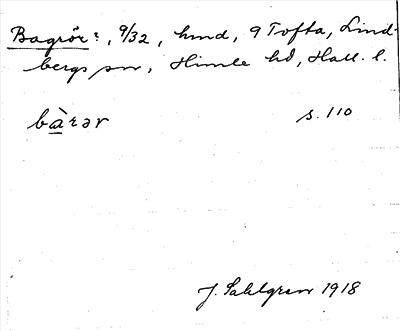 Bagrör:, 9/32, hmd, 9 Tofta, Lind-
bergs sn, Himle hd, Hall. l.
bàrər s. 110
J. Sahlgren 1918